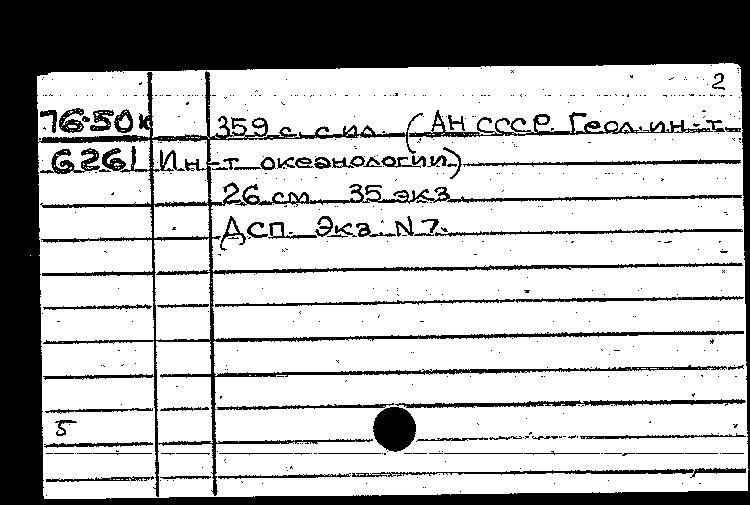 2
76-50к 359 с. с ил. (АН СССР. Геол. ин-т.
6261 Ин-т океанологии)
26 см 35 экз.
ДСП. Экз. N 7.
5